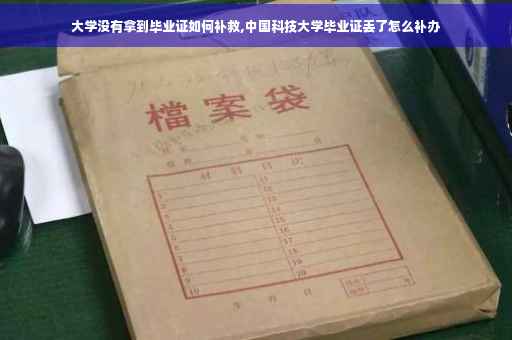 大学没有拿到毕业证如何补救,中国科技大学毕业证丢了怎么补办
檔案袋
材料目次
1 11
2 12
3 13
4 14
5 15
6 16
7 17
8 18
9 19
10 20
年 月 日